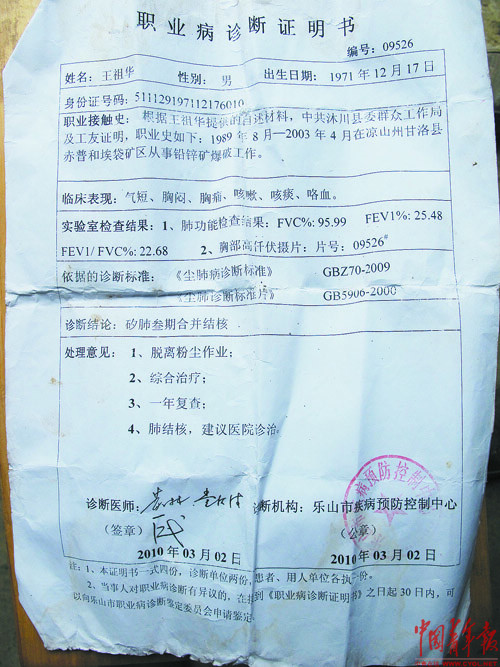 职业病诊断证明书
编号：09526
姓名：王祖华 性别：男 出生日期：1971年12月17日
身份证号码：511129197112176010
职业接触史：根据王祖华提供的自述材料，中共沐川县委群众工作局
及工友证明，职业史如下：1989年8月—2003年4月在凉山州甘洛县
赤普和埃袋矿区从事铅锌矿爆破工作。
临床表现：气短、胸闷、胸痛、咳嗽、咳痰、咯血。
实验室检查结果：1、肺功能检查结果：FVC%: 95.99 FEV1%: 25.48
FEV1/ FVC%: 22.68 2、胸部高仟伏摄片：片号：09526#
依据的诊断标准：《尘肺病诊断标准》 GBZ70-2009
《尘肺病诊断标准片》 GB5906-2000
诊断结论：矽肺叁期合并结核
处理意见：1、脱离粉尘作业；
2、综合治疗；
3、一年复查；
4、肺结核，建议医院诊治。
诊断医师： 诊断机构：乐山市疾病预防控制中心
（签章） （公章）
2010年03月02日 2010年03月02日
注：1、本证明书一式四份，诊断单位两份，患者、用人单位各执一份。
2、当事人对职业病诊断有异议的，在接到《职业病诊断证明书》之日起30日内，可
以向乐山市职业病诊断鉴定委员会申请鉴定。
病预防控制
中国青年报